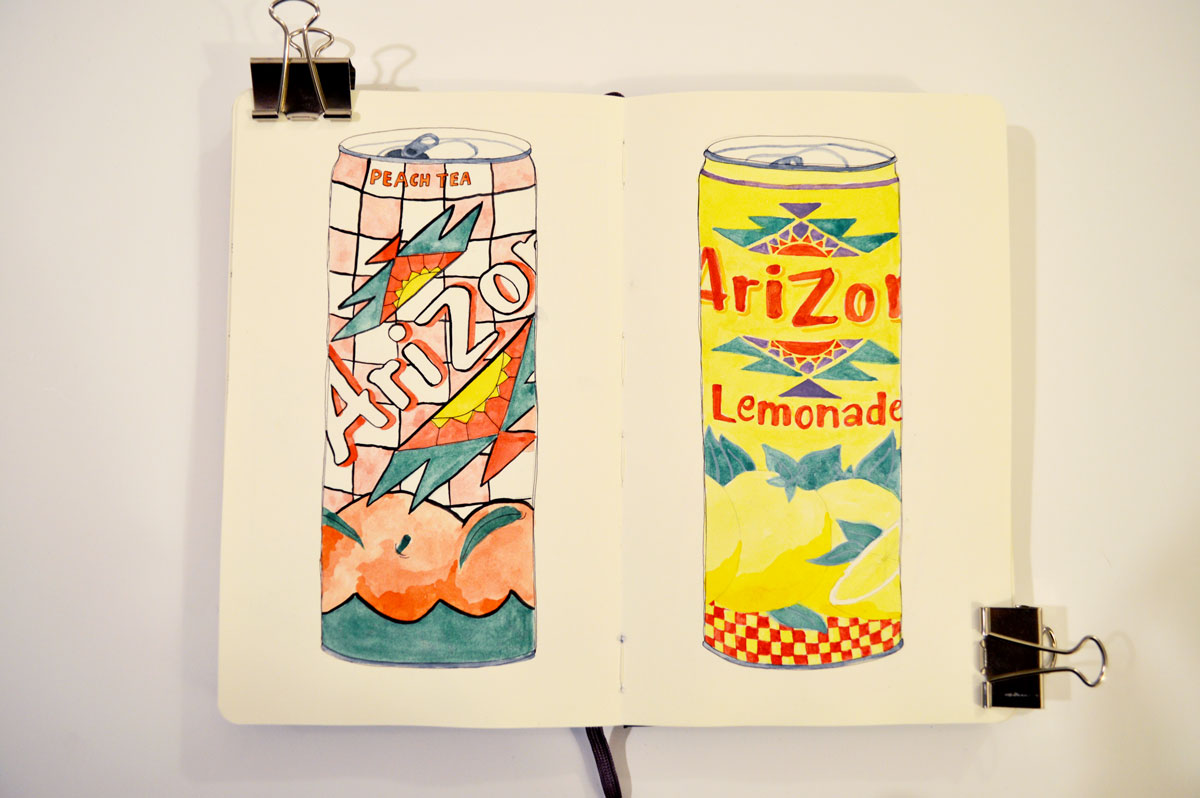 PEACH TEA
Arizor
Arizor
Lemonade